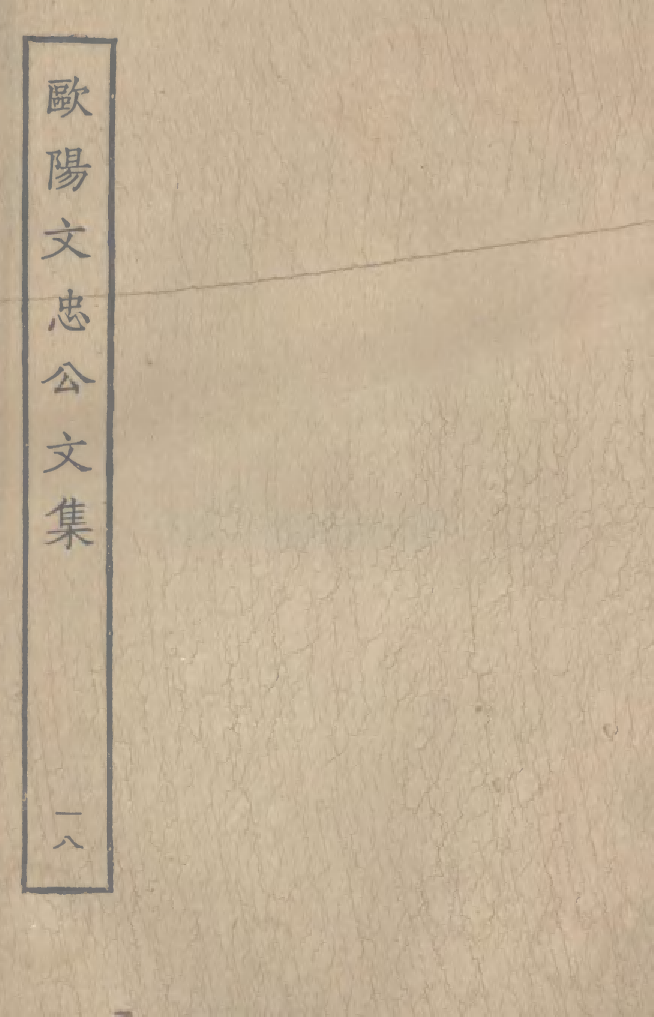 歐陽文忠公文集
一八